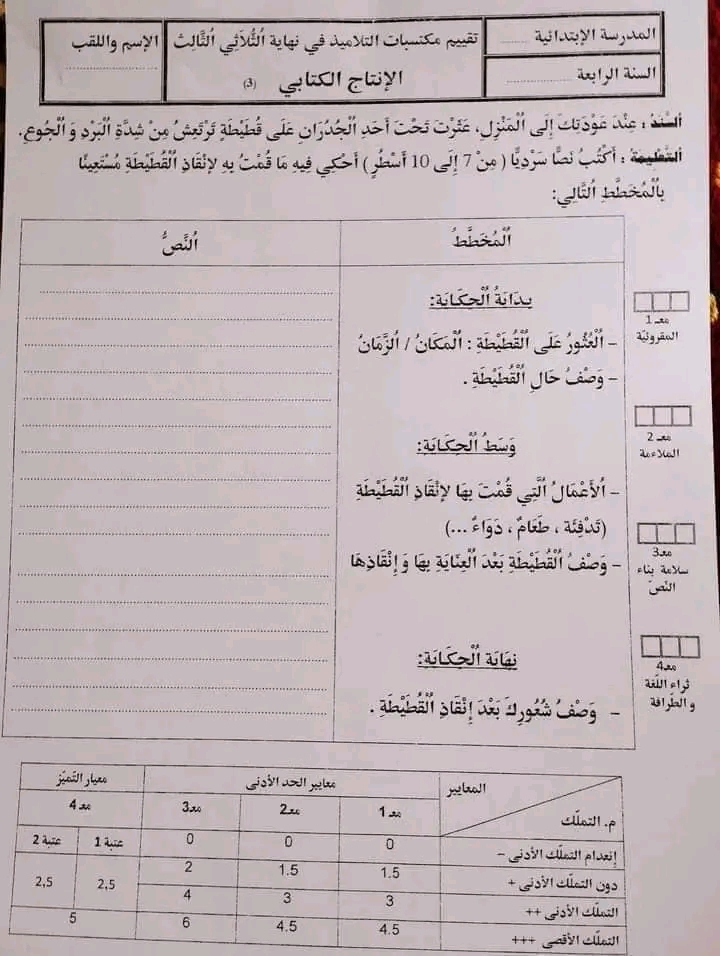 المدرسة الإبتدائية ........
تقييم مكتسبات التلاميذ في نهاية اُلثُّلاَثِي اُلثَّالِث
الإسم واللقب
السنة الرابعة ..................
الإنتاج الكتابي (3)
..................
اُلسَّنَدُ : عِنْدَ عَوْدَتِكَ إِلَى اُلْمَنْزِلِ، عَثَرْتَ تَحْتَ أَحَدِ اُلْجُدْرَانِ عَلَى قُطَيْطَةٍ تَرْتَعِشُ مِنْ شِدَّةِ اُلْبَرْدِ وَ اُلْجُوعِ.
اُلتَّعْلِيمَة : أَكْتُبُ نَصًّا سَرْدِيًّا ( مِنْ 7 إِلَى 10 أَسْطُرٍ ) أَحْكِي فِيهِ مَا قُمْتُ بِهِ لِإِنْقَاذِ اُلْقُطَيْطَةِ مُسْتَعِينًا
بِاُلْمُخَطَّطِ اُلتَّالِي:
اُلْمُخَطَّطُ
اُلنَّصُّ
بِدَايَةُ اُلْحِكَايَةِ:
– اُلْعُثُورُ عَلَى اُلْقُطَيْطَةِ : اُلْمَكَانُ / اُلزَّمَانُ
– وَصْفُ حَالِ اُلْقُطَيْطَةِ .
وَسَطُ اُلْحِكَايَةِ:
– اُلأَعْمَالُ اُلَّتِي قُمْتَ بِهَا لِإِنْقَاذِ اُلْقُطَيْطَةِ
(تَدْفِئَة ، طَعَامٌ ، دَوَاءٌ ...)
– وَصْفُ اُلْقُطَيْطَةِ بَعْدَ اُلْعِنَايَةِ بِهَا وَ إِنْقَاذِهَا
نِهَايَة اُلْحِكَايَةِ:
– وَصْفُ شُعُورِكَ بَعْدَ إِنْقَاذِ اُلْقُطَيْطَةِ .
معـ 1
المقروئيّة
معـ 2
الملاءمة
معـ3
سلامة بناء
النّصّ
معـ4
ثراء اللّغة
و الطّرافة
المعايير
معايير الحد الأدنى
معيار التّميّز
م. التملّك
معـ 1
معـ2
معـ3
معـ 4
إنعدام التملّك الأدنى –
0
0
0
عتبة 1
عتبة 2
دون التملّك الأدنى +
1.5
1.5
2
2,5
2,5
التملّك الأدنى ++
3
3
4
التملّك الأقصى +++
4.5
4.5
6
5